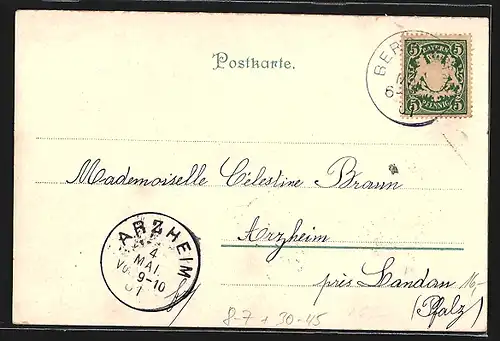 Postkarte.
BER
5 BAYERN 5
5 PFENNIG 5
Mademoiselle Célestine Braun
Arzheim
près Landau
(Pfalz)
ARZHEIM
4
MAI.
9-10
01
8-7 + 30-45